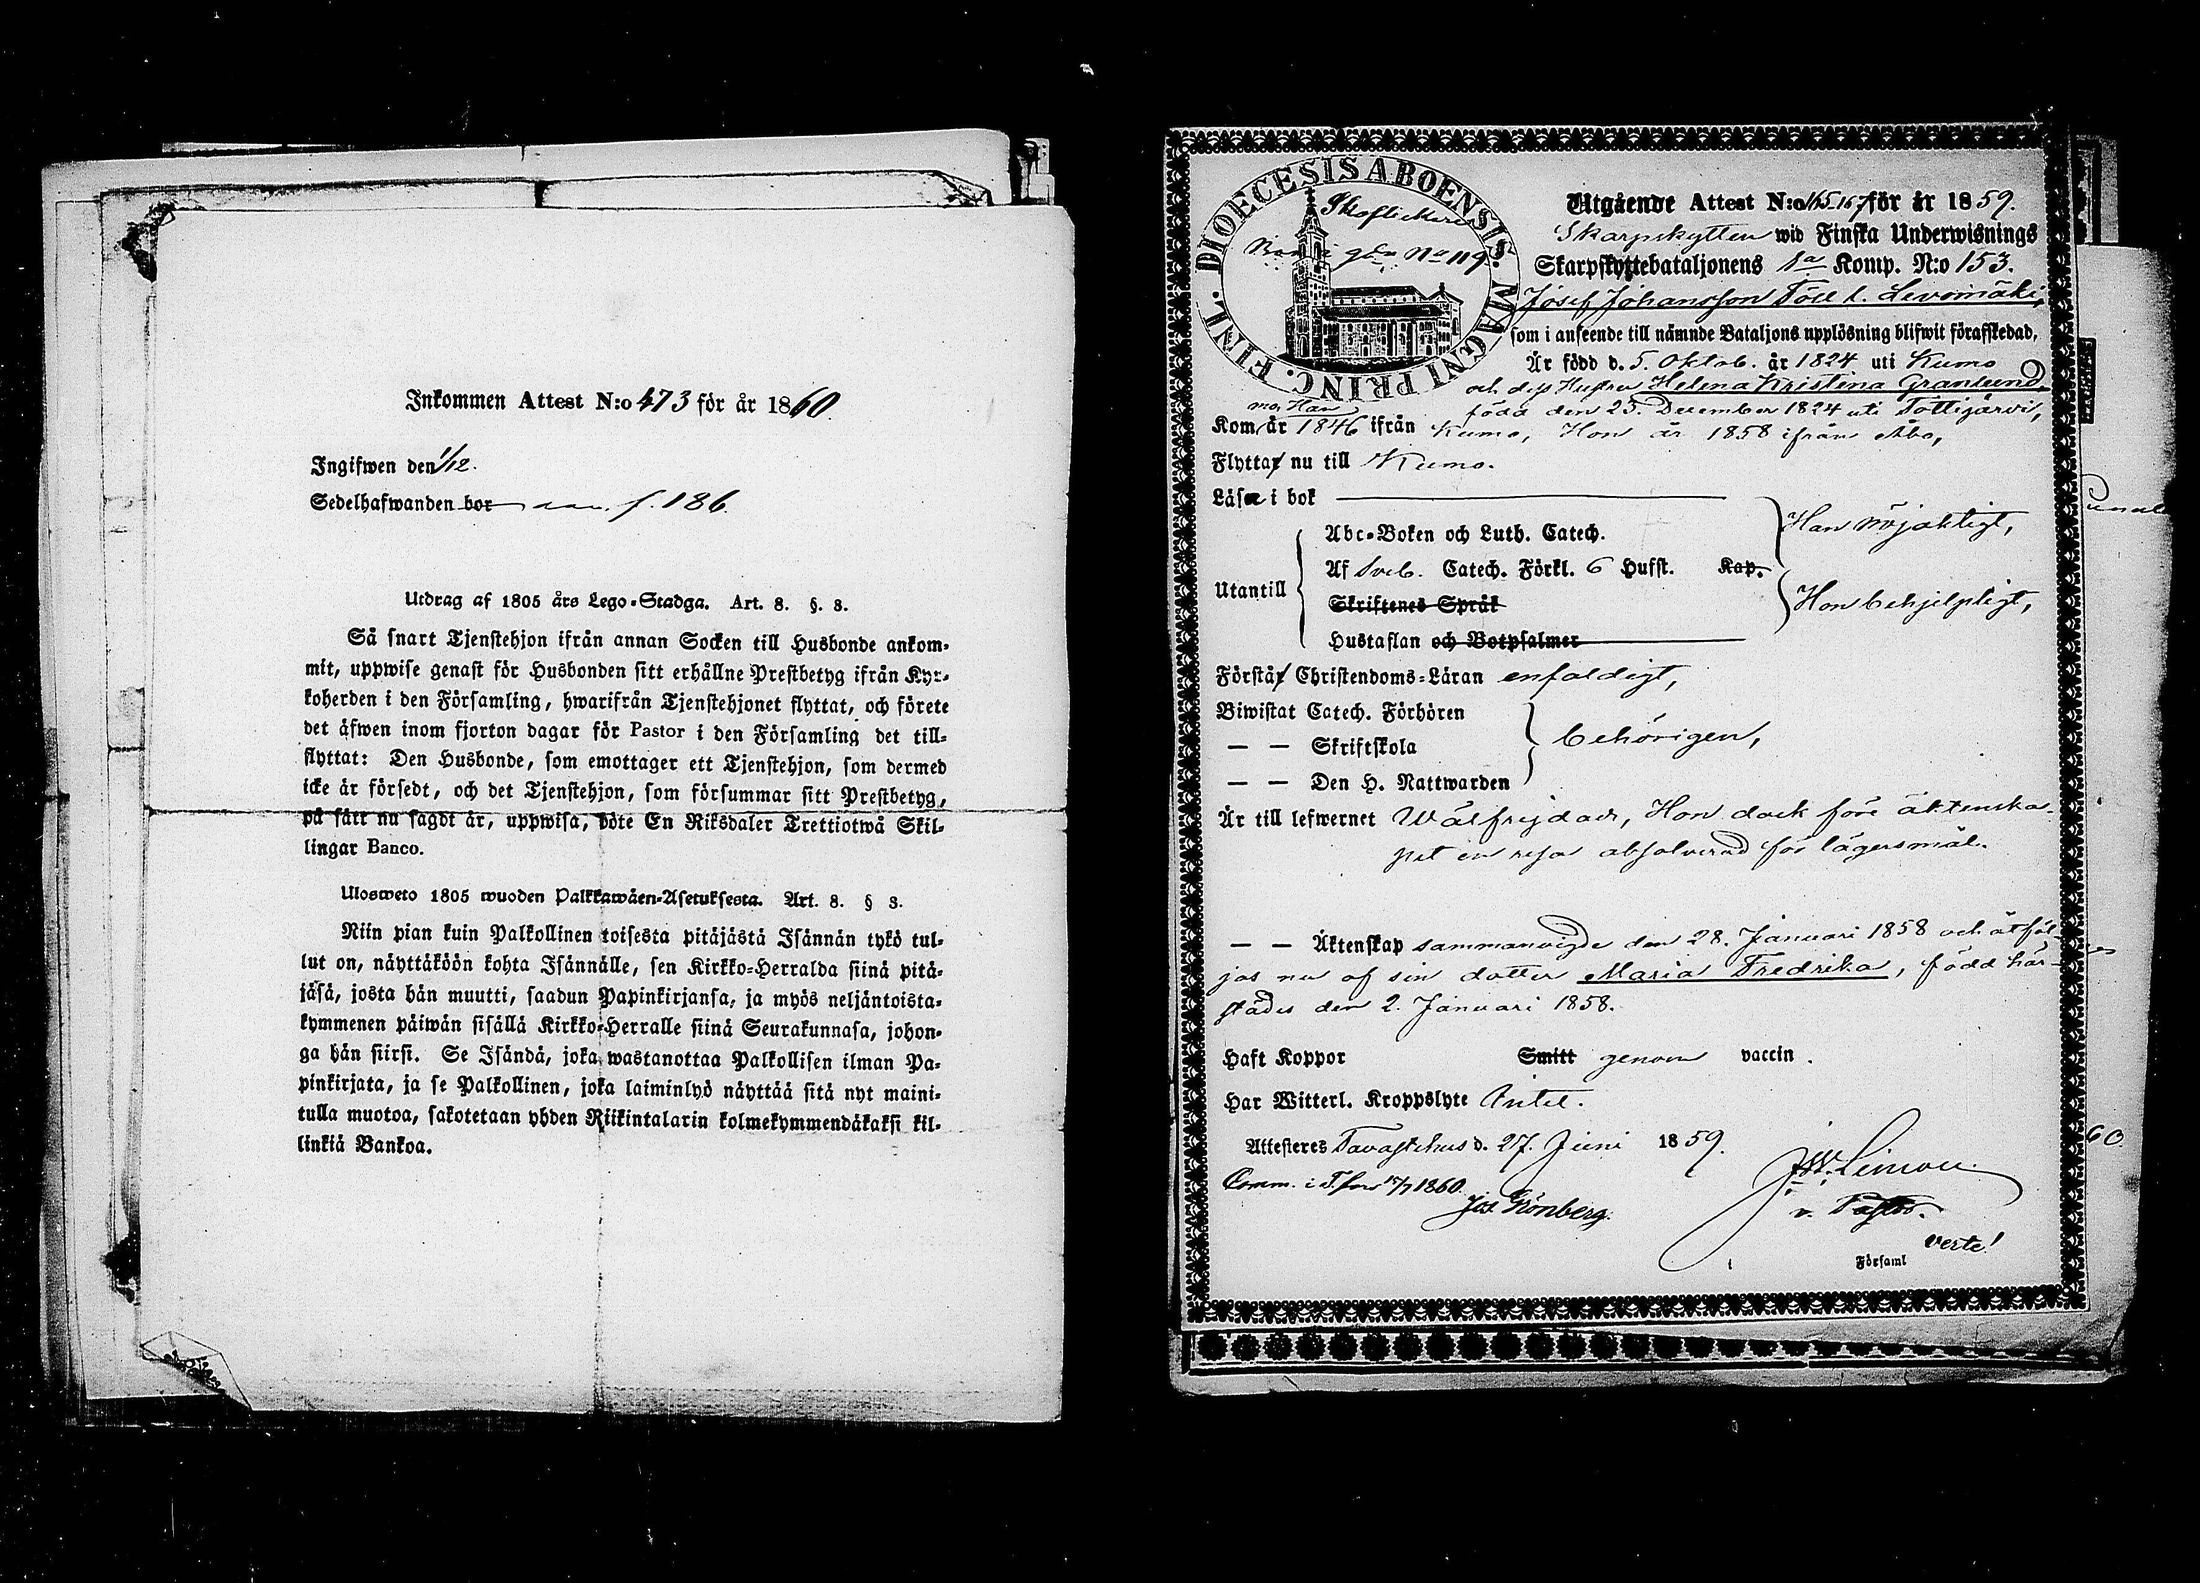 Inkommen Attest N:o 473 för år 1860.
Ingifwen den 1/12.
Sedelhafwanden bor f. 186.
Utdrag af 1805 års Lego-Stadga. Art. 8. §. 8.
Så snart Tjenstehjon ifrån annan Socken till Husbonde ankom-
mit, uppwise genast för Husbonden sitt erhållne Prestbetyg ifrån Kyr-
koherden i den Församling, hwarifrån Tjenstehjonet flyttat, och förete
det äfwen inom fjorton dagar för Pastor i den Församling det till-
flyttat: Den Husbonde, som emottager ett Tjenstehjon, som dermed
icke är försedt, och det Tjenstehjon, som försummar sitt Prestbetyg,
på sätt nu sagdt är, uppwisa, böte En Riksdaler Trettiotwå Skil-
lingar Banco.
Ulosweto 1805 wuoden Palkkawäen-Asetuksesta. Art. 8. § 8.
Niin pian kuin Palkollinen toisesta pitäjästä Isännän tykö tul-
lut on, näyttäköön kohta Isännälle, sen Kirkko-Herralda siinä pitä-
jäsä, josta hän muutti, saadun Papinkirjansa, ja myös neljäntoista-
kymmenen päiwän sisällä Kirkko-Herralle siinä Seurakunnasa, johon-
ga hän siirsi. Se Isändä, joka wastanottaa Palkollisen ilman Pa-
pinkirjata, ja se Palkollinen, joka laiminlyö näyttää sitä nyt maini-
tulla muotoa, sakotetaan yhden Riikintalarin kolmekymmendäkaksi kil-
linkiä Bankoa.
DIOECESIS ABOENSIS. MAGNI PRINC. FINL.
No 119
Utgående Attest N:o 165.167 för år 1859.
Skarpskytten wid Finska Underwisnings
Skarpskyttebataljonens 1a Komp. N:o 153.
Josef Johansson Töll l. Levomäki,
som i anseende till nämnde Bataljons upplösning blifwit förafskedad,
Är född d. 5. Oktob. år 1824 uti Kumo
och dess Hustru Helena Kristina Granlund,
född den 23. December 1824 uti Tottijärvi,
Han
Kom år 1846 ifrån Kumo, Hon år 1858 ifrån Åbo,
Flytta nu till Kumo.
Läser i bok
Abc-Boken och Luth. Catech.
Han nöjaktigt,
Af Sveb. Catech. Förkl. 6 Hufst. Kap.
Utantill
Hon behjelpligt,
Skriftenes Språk
Hustaflan och Botpsalmer
Förstå Christendoms-Läran enfaldigt,
Biwistat Catech. Förhören
— — Skriftskola
behörigen,
— — Den H. Nattwarden
Är till lefwernet Wälfrejdade, Hon dock före äktenska-
pet en resa absolverad för lägersmål.
— — Äktenskap sammanvigde den 28. Januari 1858 och åtföl-
jas nu af sin dotter Maria Fredrika, född här-
städes den 2. Januari 1858.
Haft Koppor Smitt genom vaccin.
Har Witterl. Kroppslyte Intet.
Attesteres Tavastehus d. 27. Juni 1859.
Comm. i T:fors 15/7 1860.
Jos. Grönberg.
v. Pastor.
verte!
Församl
60.